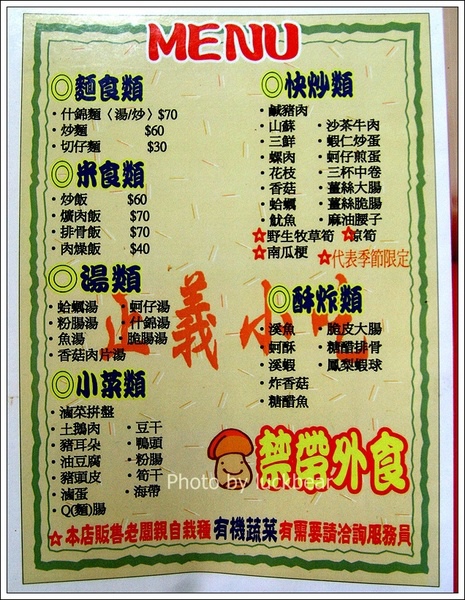 MENU
◎麵食類
・什錦麵〈湯/炒〉$70
・炒麵 $60
・切仔麵 $30
◎米食類
炒飯 $60
・爌肉飯 $70
・排骨飯 $70
・肉燥飯 $40
◎湯類
・蛤蠣湯 ・蚵仔湯
・粉腸湯 ・什錦湯
・魚湯 ・脆腸湯
・香菇肉片湯
◎小菜類
・滷菜拼盤
・土鵝肉 ・豆干
・豬耳朵 ・鴨頭
・油豆腐 ・粉腸
・豬頭皮 ・筍干
・滷蛋 ・海帶
・Q(麵)腸
◎快炒類
・鹹豬肉
・山蘇 ・沙茶牛肉
・三鮮 ・蝦仁炒蛋
・螺肉 ・蚵仔煎蛋
・花枝 ・三杯中卷
・香菇 ・薑絲大腸
・蛤蠣 ・薑絲脆腸
・魷魚 ・麻油腰子
☆野生牧草筍 ☆涼筍
☆南瓜梗 ☆代表季節限定
◎酥炸類
・溪魚 ・脆皮大腸
・蚵酥 ・糖醋排骨
・溪蝦 ・鳳梨蝦球
・炸香菇
・糖醋魚
正義小吃
禁帶外食
Photo by luckbear
☆本店販售老闆親自栽種有機蔬菜有需要請洽詢服務員